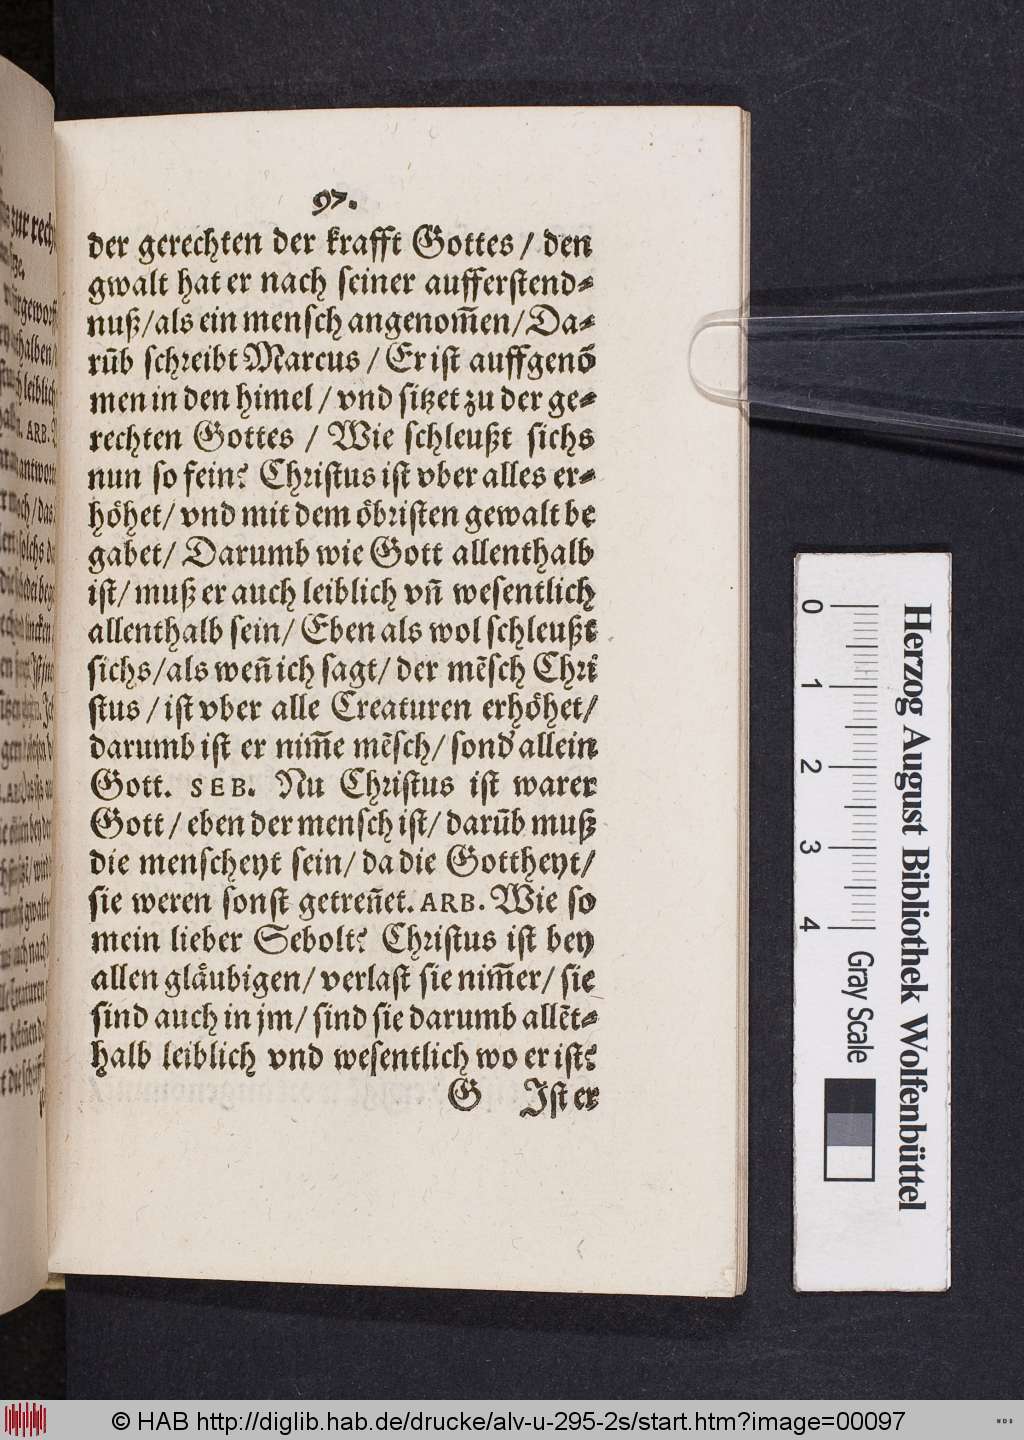 97.
der gerechten der krafft Gottes / den
gwalt hat er nach seiner aufferstend⸗
nuß/als ein mensch angenom̃en/Da⸗
rũb schreibt Marcus / Er ist auffgenõ
men in den himel / vnd sitzet zu der ge⸗
rechten Gottes / Wie schleußt sichs
nun so fein? Christus ist vber alles er⸗
höhet/ vnd mit dem öbristen gewalt be
gabet/ Darumb wie Gott allenthalb
ist/ muß er auch leiblich vñ wesentlich
allenthalb sein/ Eben als wol schleußt
sichs/als weñ ich sagt/ der mẽsch Chri
stus / ist vber alle Creaturen erhöhet/
darumb ist er nim̃e mẽsch/ sond' allein
Gott. SEB. Nu Christus ist warer
Gott / eben der mensch ist/ darũb muß
die menscheyt sein/ da die Gottheyt/
sie weren sonst getreñet. ARB. Wie so
mein lieber Sebolt? Christus ist bey
allen gläubigen/ verlast sie nim̃er/ sie
sind auch in jm/ sind sie darumb allẽt⸗
halb leiblich vnd wesentlich wo er ist?
G Ist er
0 1 2 3 4
Gray Scale
Herzog August Bibliothek Wolfenbüttel
© HAB http://diglib.hab.de/drucke/alv-u-295-2s/start.htm?image=00097